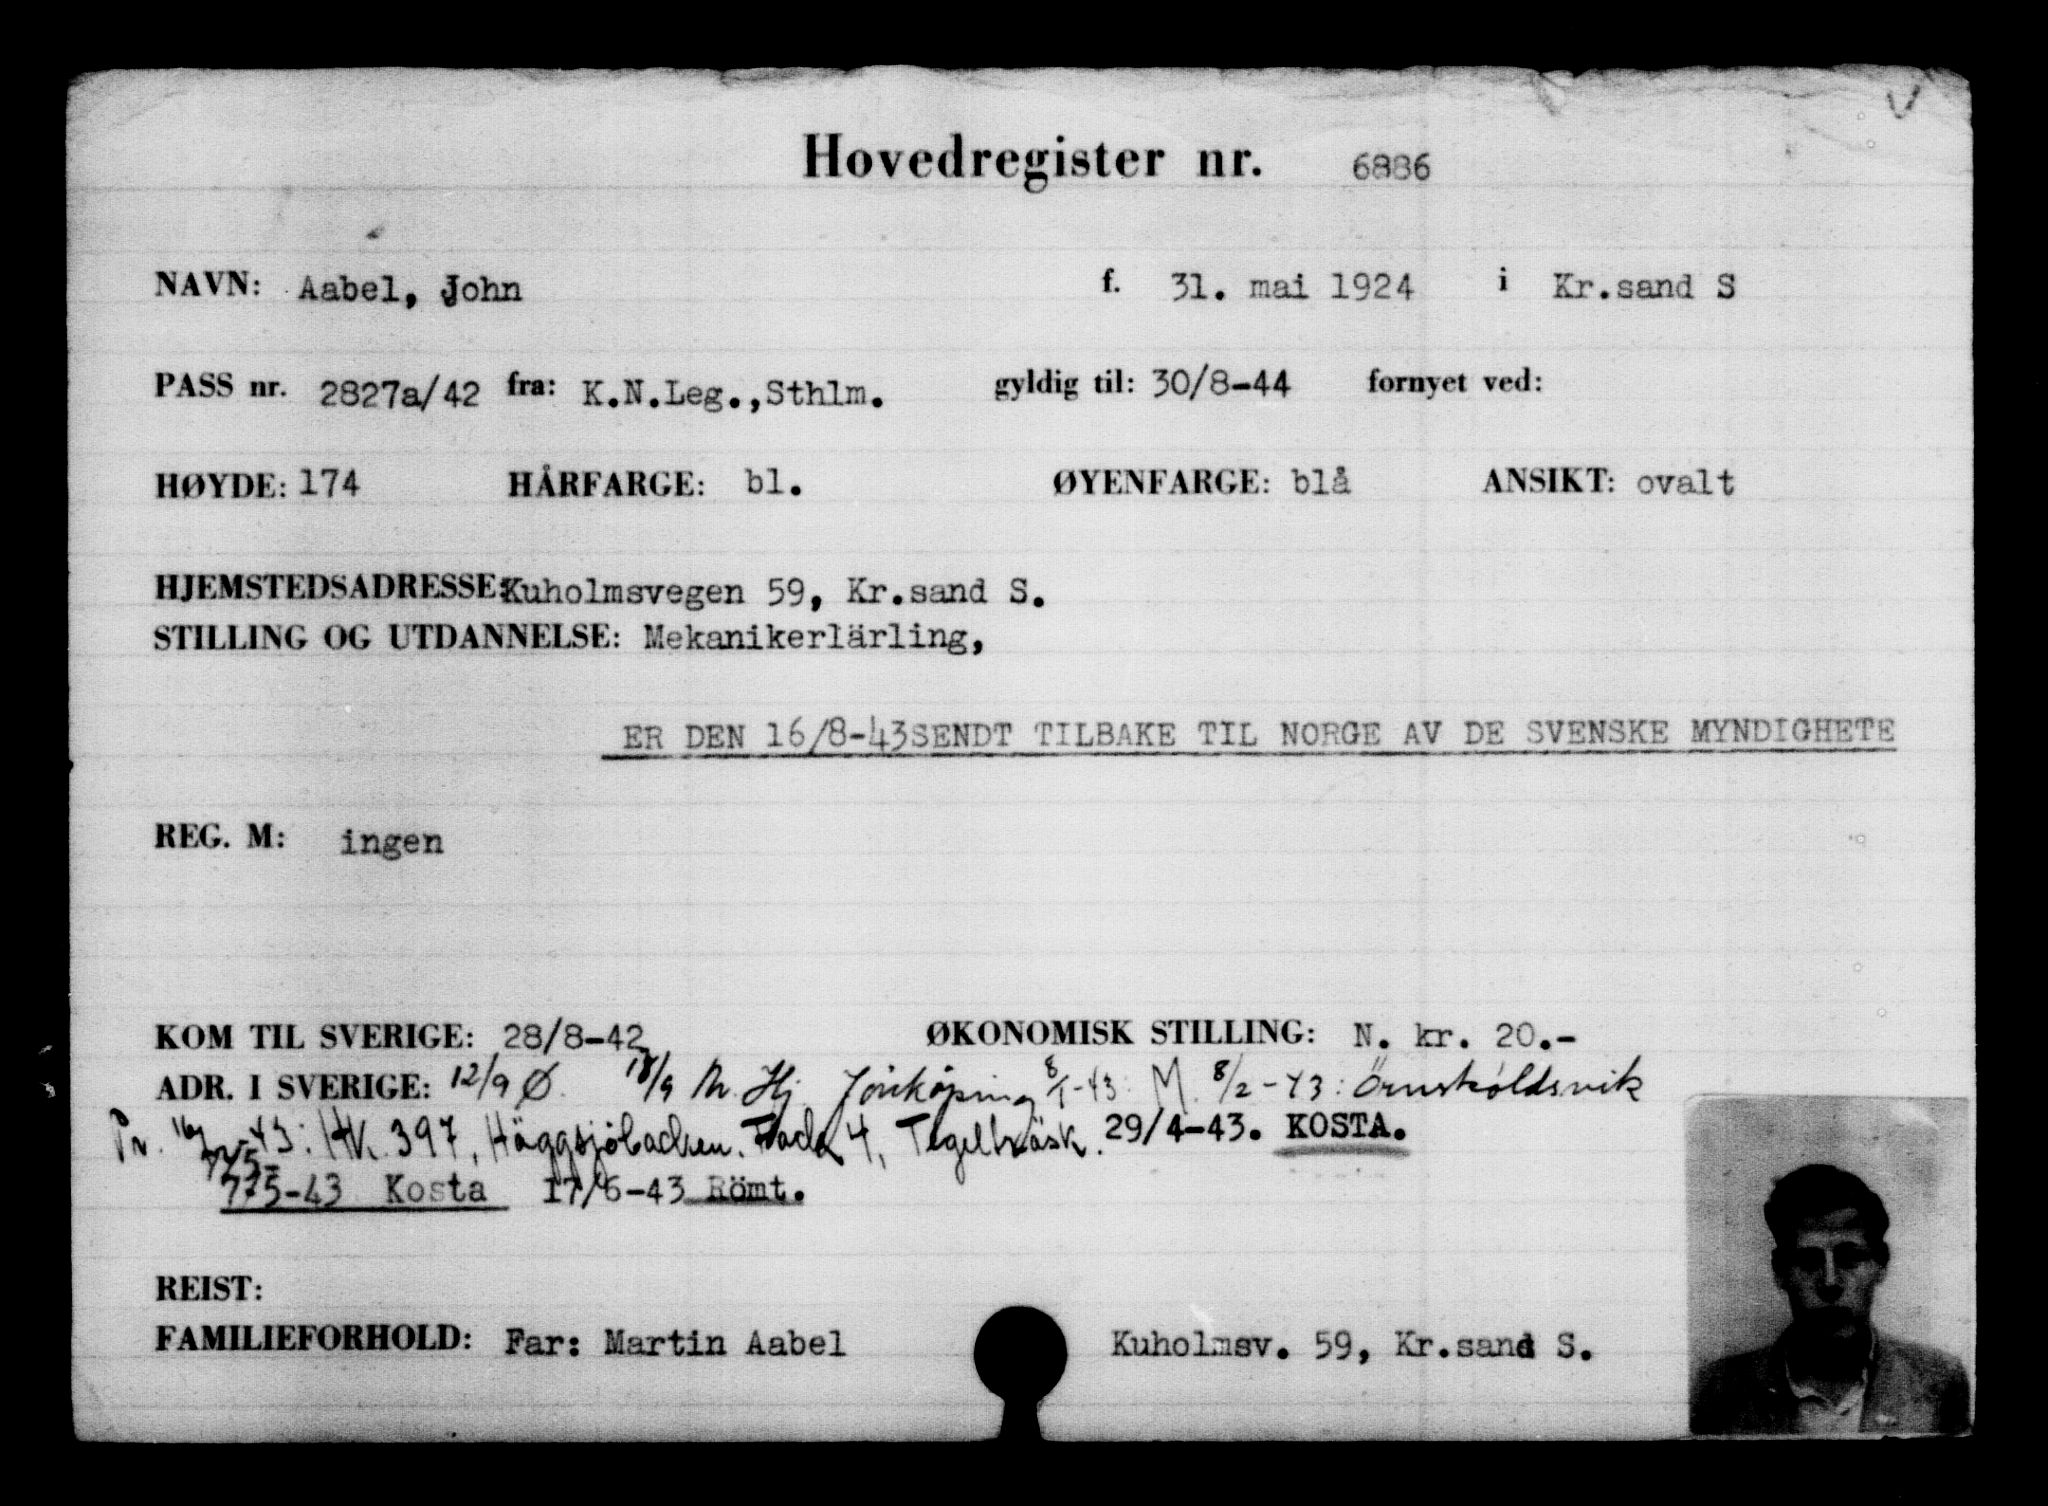 Hovedregister nr. 6886
NAVN: Aabel, John f. 31. mai 1924 i Kr.sand S
PASS nr. 2827a/42 fra: K.N.Leg.,Sthlm. gyldig til: 30/8-44 fornyet ved:
HØYDE: 174 HÅRFARGE: bl. ØYENFARGE: blå ANSIKT: ovalt
HJEMSTEDSADRESSE: Kuholmsvegen 59, Kr.sand S.
STILLING OG UTDANNELSE: Mekanikerlärling,
ER DEN 16/8-43SENDT TILBAKE TIL NORGE AV DE SVENSKE MYNDIGHETE
REG. M: ingen
KOM TIL SVERIGE: 28/8-42 ØKONOMISK STILLING: N. kr. 20.-
ADR. I SVERIGE: 12/9 Ø. 18/9 M. Hj. Jönköping 8/1-43: M. 8/2-43: Örnsköldsvik
Pr. -43: HK. 397, Häggsjöbacken. Fack 4, Tegelträsk. 29/4-43. KOSTA.
7/5-43 Kosta 17/6-43 Römt.
REIST:
FAMILIEFORHOLD: Far: Martin Aabel Kuholmsv. 59, Kr.sand S.